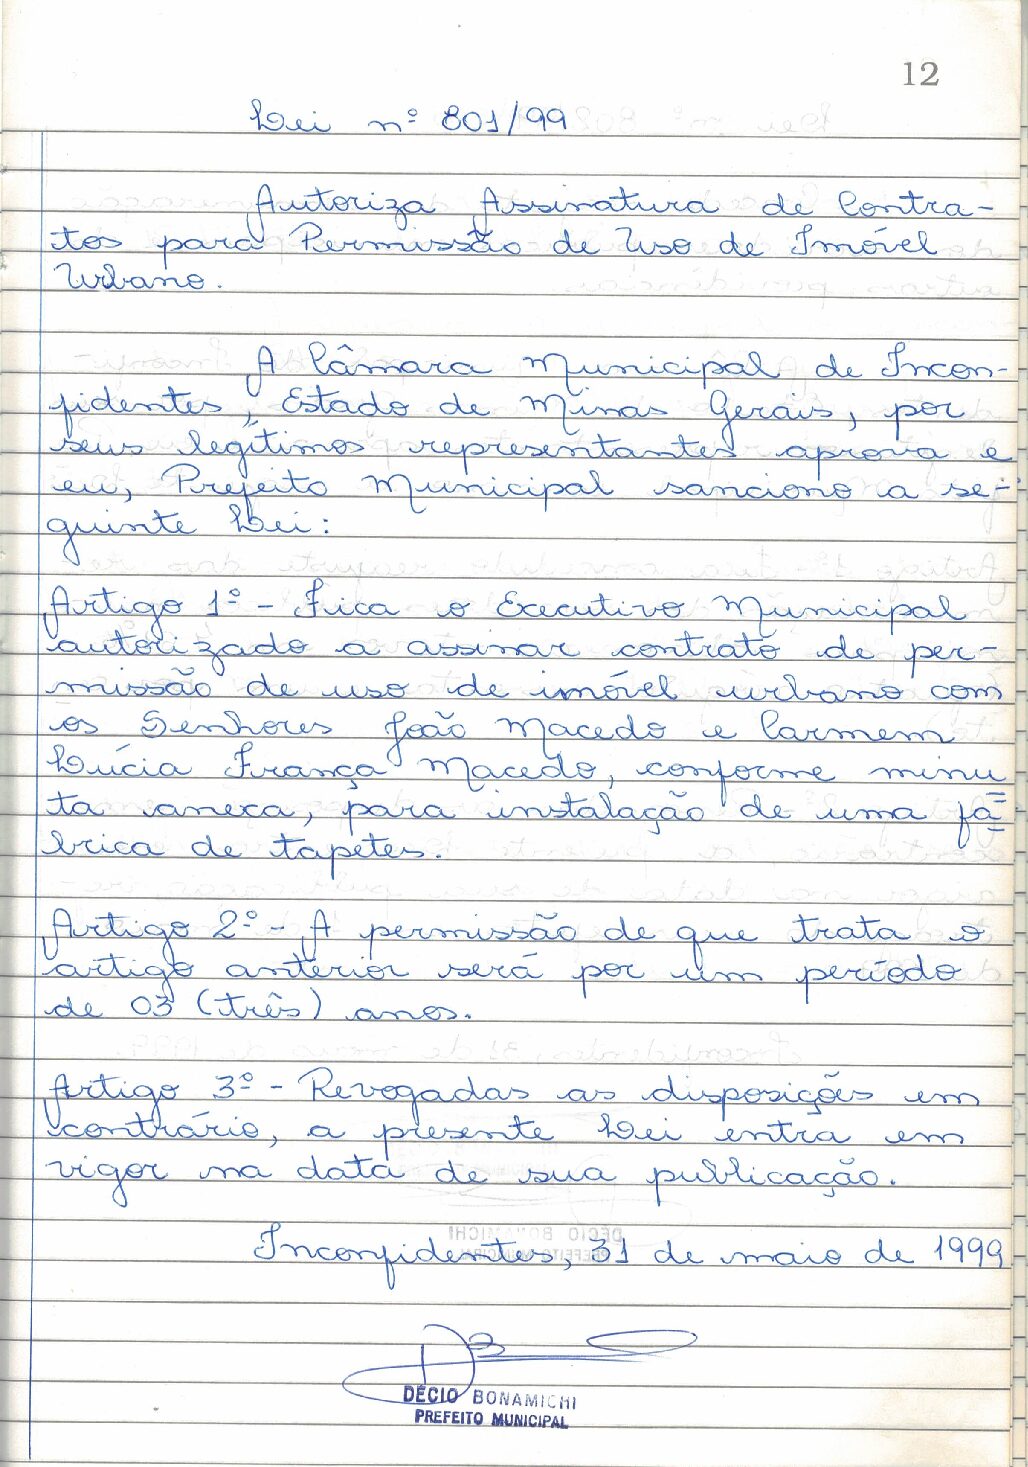 12
Lei nº 801/99
Autoriza Assinatura de Contra-
tos para Permissão de Uso de Imóvel
Urbano.
A Câmara Municipal de Incon-
fidentes, Estado de Minas Gerais, por
seus legítimos representantes aprova e
eu, Prefeito Municipal sanciono a se-
guinte Lei:
Artigo 1º - Fica o Executivo Municipal
autorizado a assinar contrato de per-
missão de uso de imóvel urbano com
os Senhores João Macedo e Carmem
Lúcia França Macedo, conforme minu
ta anexa, para instalação de uma fá-
brica de tapetes.
Artigo 2º - A permissão de que trata o
artigo anterior será por um período
de 03 (três) anos.
Artigo 3º - Revogadas as disposições em
contrário, a presente Lei entra em
vigor na data de sua publicação.
Inconfidentes, 31 de maio de 1999
DÉCIO BONAMICHI
PREFEITO MUNICIPAL